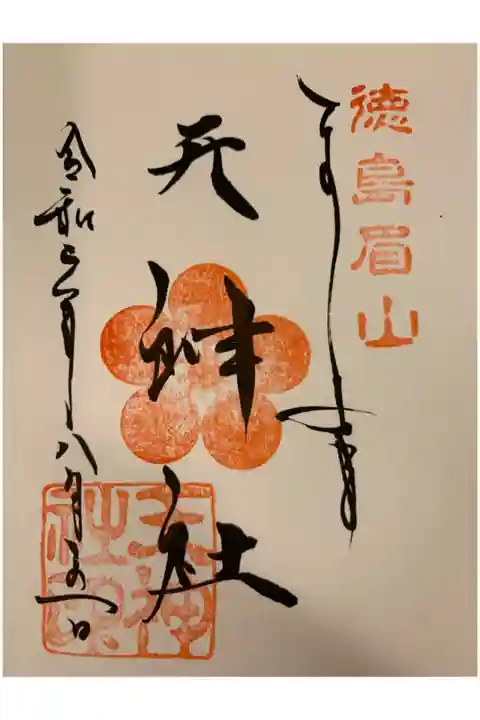 徳島眉山
奉拝
天神社
令和 年八月 日
天神社